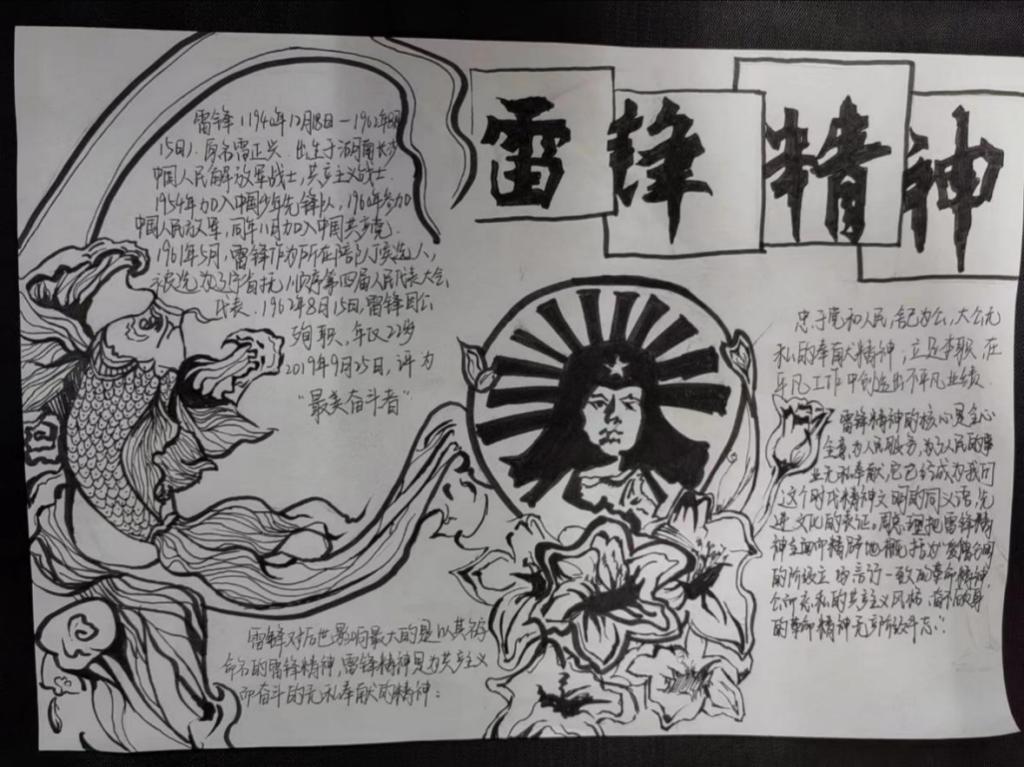 雷锋精神
雷锋（1940年12月18日—1962年8月
15日），原名雷正兴，出生于湖南长沙
中国人民解放军战士，共产主义战士
1954年加入中国少年先锋队，1960年参加
中国人民解放军，同年11月加入中国共产党.
1961年5月，雷锋作为所在部队候选人，
被选为辽宁省抚顺市第四届人民代表大会
代表. 1962年8月15日，雷锋因公
殉职，年仅22岁
2019年9月25日，评为
“最美奋斗者”
忠于党和人民，舍己为公，大公无
私的奉献精神；立足本职，在
平凡工作中创造出不平凡业绩.
雷锋精神的核心是全心
全意为人民服务，为了人民的事
业无私奉献，它已经成为我们
这个时代精神文明的同义语，先
进文化的表征。周总理把雷锋精
神全面而精辟地概括为爱憎分明
的阶级立场言行一致的革命精神
公而忘私的共产主义风格，奋不顾身
的革命精神无产阶级斗志.
雷锋对后世影响最大的是以其名
命名的雷锋精神，雷锋精神是为共产主义
而奋斗的无私奉献的精神；